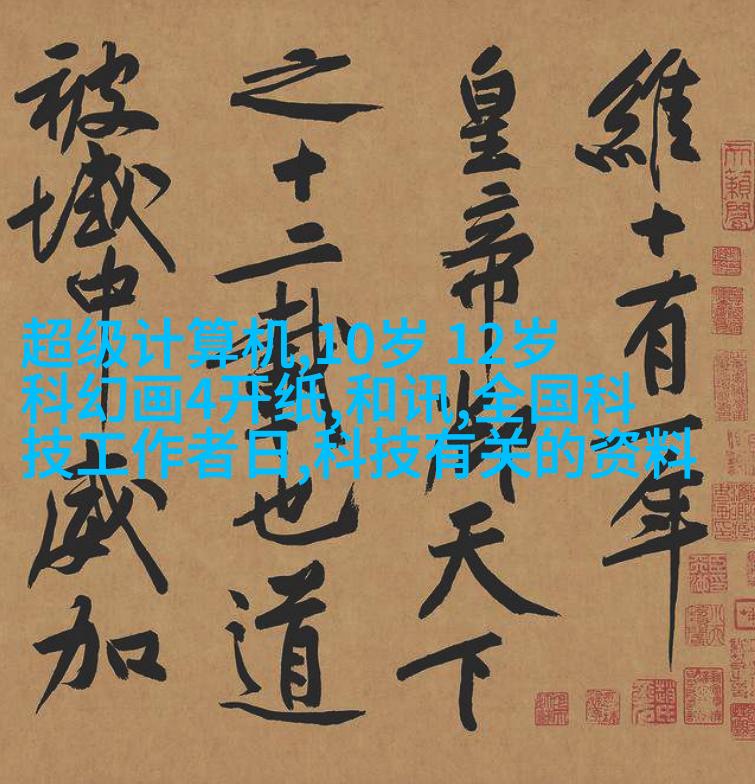 維十有一年
皇帝御天下
之十二載也道
被域中威加
超级计算机,10岁 12岁
科幻画4开纸,和讯,全国科
技工作者日,科技有关的资料